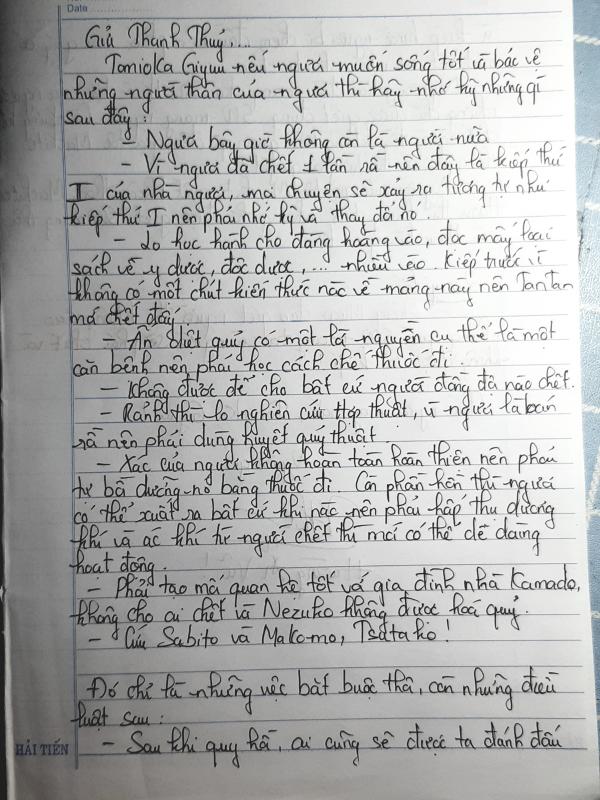 Date
Giả Thanh Thuý....
Tomioka Giyuu nếu ngươi muốn sống tốt và bác về
những người thân của ngươi thì hãy nhớ kỹ những gì
sau đây :
- Ngươi bây giờ không còn là người nữa
- Vì ngươi đã chết 1 lần rồi nên đây là kiếp thứ
I của nhà ngươi, mọi chuyện sẽ xảy ra tương tự như
kiếp thứ I nên phải nhớ kỹ và thay đổi nó.
- Lo học hành cho đàng hoàng vào, đọc mấy loại
sách về y dược, độc dược, ... nhiều vào. Kiếp trước vì
không có một chút kiến thức nào về mảng này nên Tan Tan
mới chết đấy.
- Ấn diệt quỷ có một lời nguyền cụ thể là một
căn bệnh nên phải học cách chế thuốc đi.
- Không được để cho bất cứ người đồng đội nào chết.
- Rảnh thì lo nghiên cứu Hợp thuật, vì ngươi là bán
rồi nên phải dùng huyết quỷ thuật.
- Xác của ngươi không hoàn toàn hoàn thiện nên phải
tự bồi dưỡng nó bằng thuốc đi. Còn phần hồn thì ngươi
có thể xuất ra bất cứ khi nào nên phải hấp thu dương
khí và ác khí từ người chết thì mới có thể dễ dàng
hoạt động.
- Phải tạo mối quan hệ tốt với gia đình nhà Kamado,
không cho ai chết và Nezuko không được hoá quỷ.
- Cứu Sabito và Makomo, Tsutako !
Đó chỉ là những việc bắt buộc thôi, còn những điều
luật sau :
- Sau khi quy hồi, ai cũng sẽ được ta đánh dấu
HẢI TIẾN